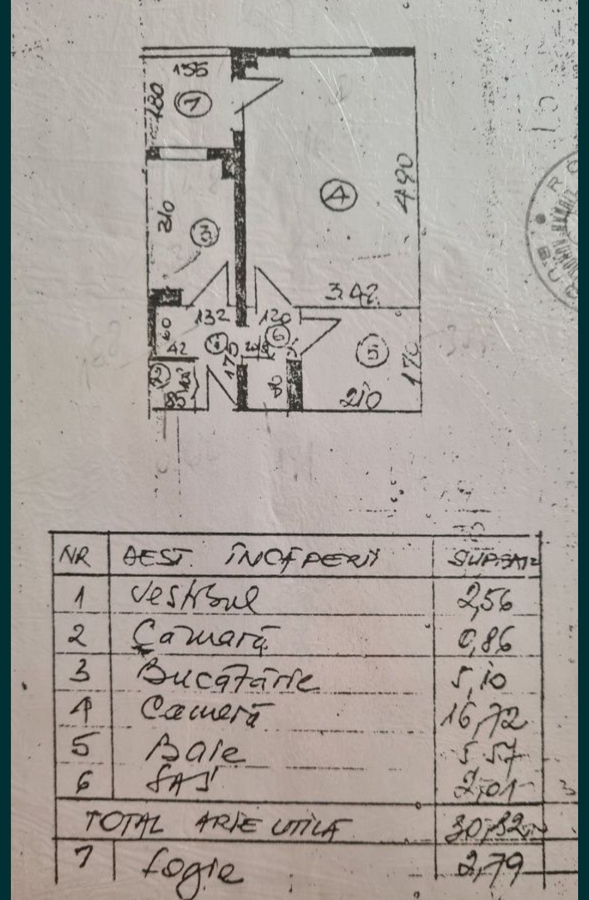 155
180
7
4
490
210
3
3.42
132
120
60
1
6
42
175
5
170
2
85
90
210
NR DEST. ÎNCĂPERII SUPRAF.
1 Vestibul 2,56
2 Cămară 0,86
3 Bucătărie 5,10
4 Cameră 16,72
5 Baie 3,57
6 SAS 2,01
TOTAL ARIE UTILĂ 30,82
7 Logie 2,79